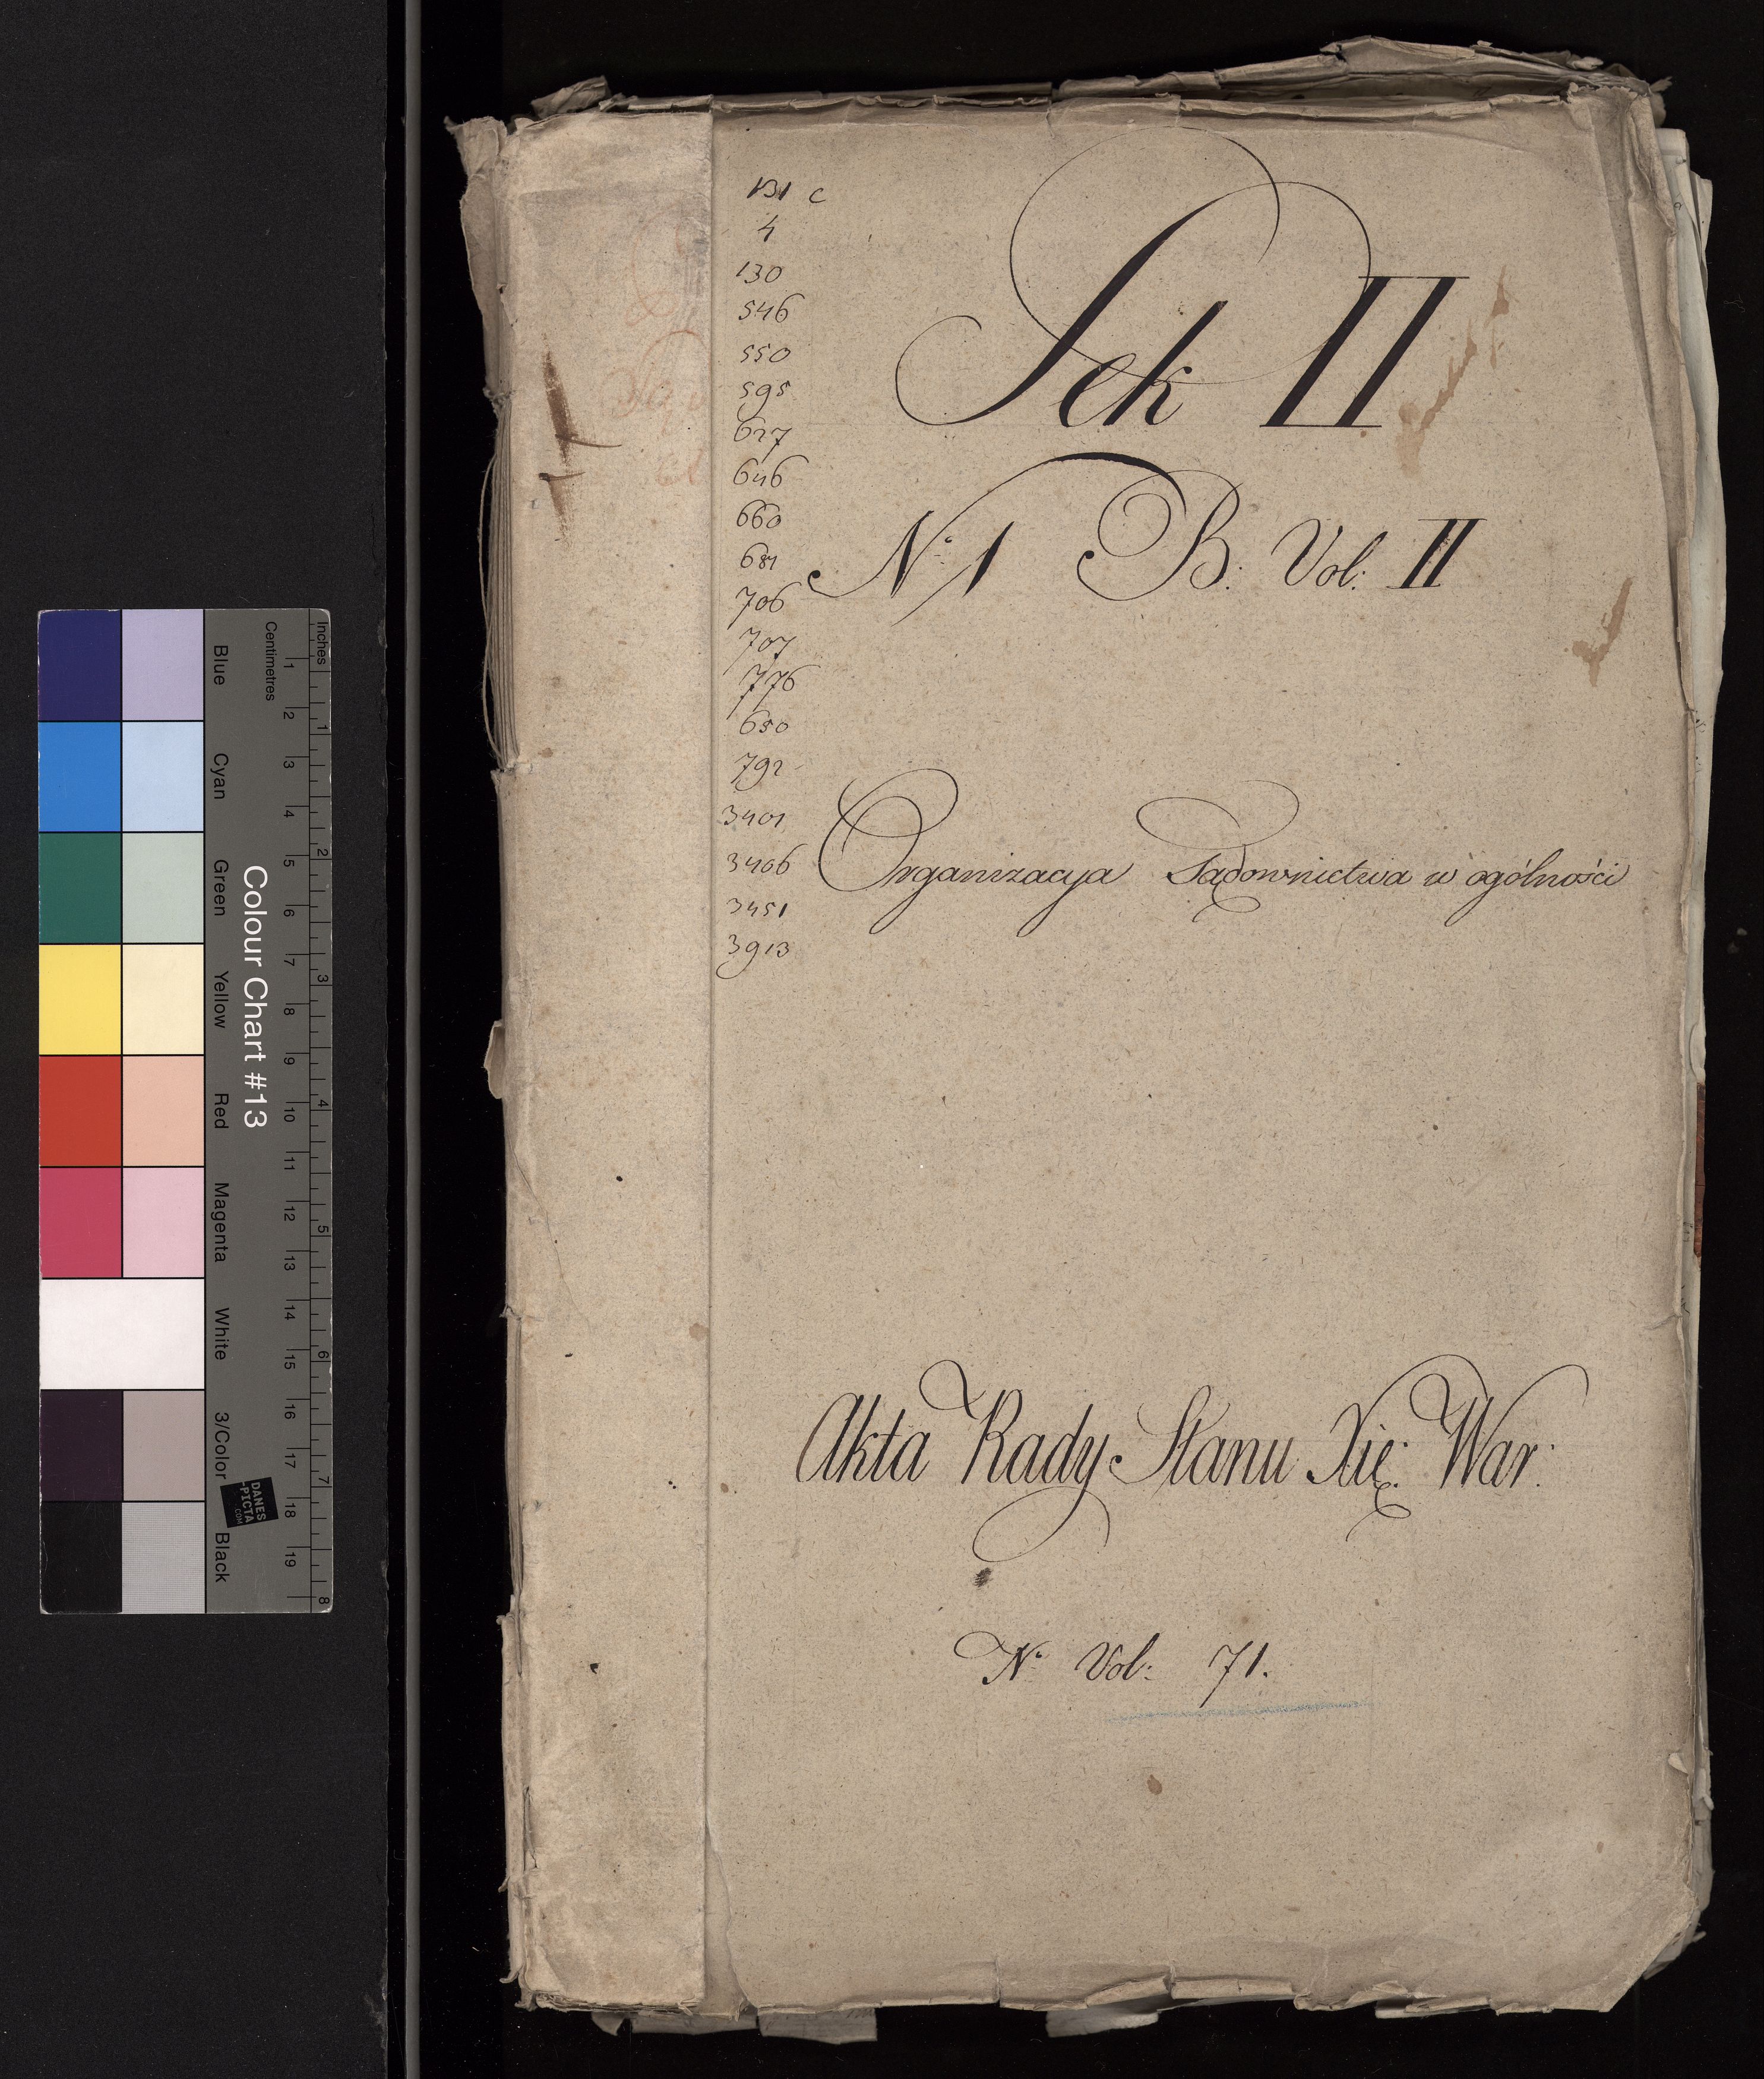 131 c
4
130
546
550
595
627
646
660
681
706
707
776
650
792
3401
3406
3451
3913
Sek II
N° 1 B. Vol: II
Organizacya Sądownictwa w ogólności
Akta Rady Stanu Xię: War:
N° Vol: 71.
Inches
Centimetres
1 2 3 4 5 6 7 8
1 2 3 4 5 6 7 8 9 10 11 12 13 14 15 16 17 18 19
Colour Chart #13
Blue Cyan Green Yellow Red Magenta White 3/Color Black
DANES
-PICTA
.COM